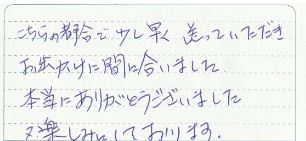 こちらの都合で少し早く送っていただき
お出かけに間に合いました
本当にありがとうございました
又楽しみにしております.